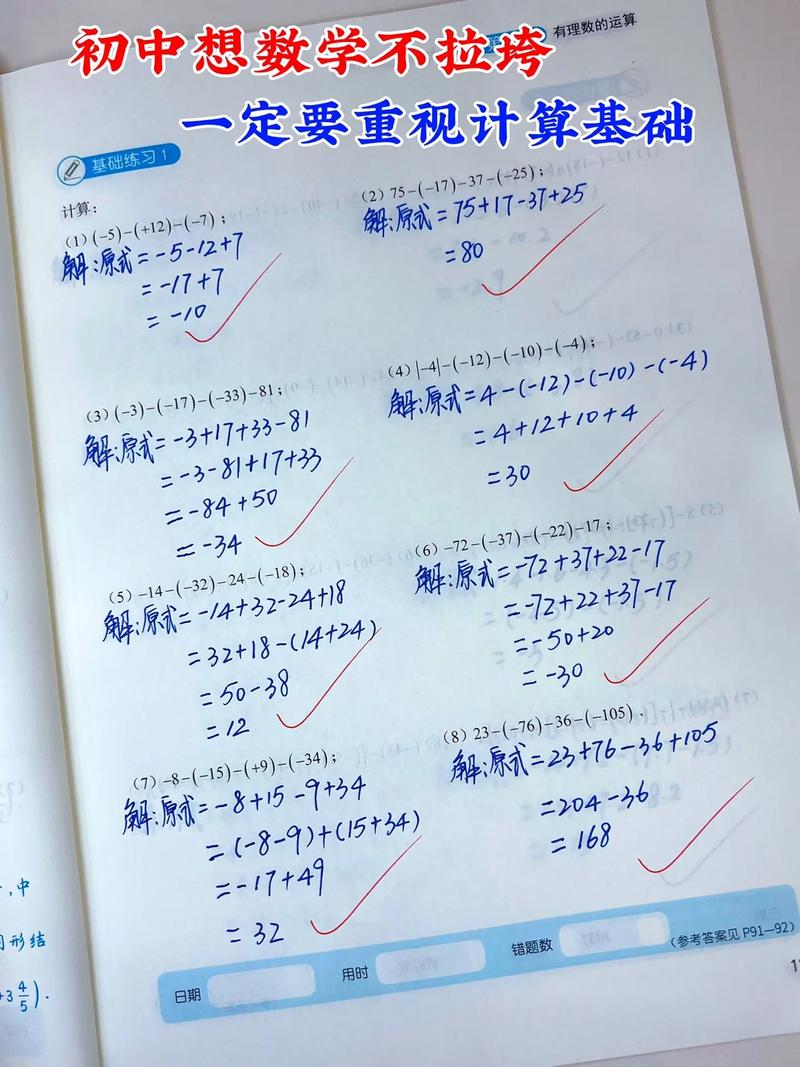 初中想数学不拉垮
有理数的运算
一定要重视计算基础
基础练习1
计算:
(1) (-5)-(+12)-(-7);
解:原式=-5-12+7
=-17+7
=-10
(2) 75-(-17)-37-(-25);
解:原式=75+17-37+25
=80
(3) (-3)-(-17)-(-33)-81;
解:原式=-3+17+33-81
=-3-81+17+33
=-84+50
=-34
(4) |-4|-(-12)-(-10)-(-4);
解:原式=4-(-12)-(-10)-(-4)
=4+12+10+4
=30
(5) -14-(-32)-24-(-18);
解:原式=-14+32-24+18
=32+18-(14+24)
=50-38
=12
(6) -72-(-37)-(-22)-17;
解:原式=-72+37+22-17
=-72+22+37-17
=-50+20
=-30
(7) -8-(-15)-(+9)-(-34);
解:原式=-8+15-9+34
=(-8-9)+(15+34)
=-17+49
=32
(8) 23-(-76)-36-(-105).
解:原式=23+76-36+105
=204-36
=168
日期 用时 错题数 (参考答案见 P91—92)
,中
形结
+3 4/5).